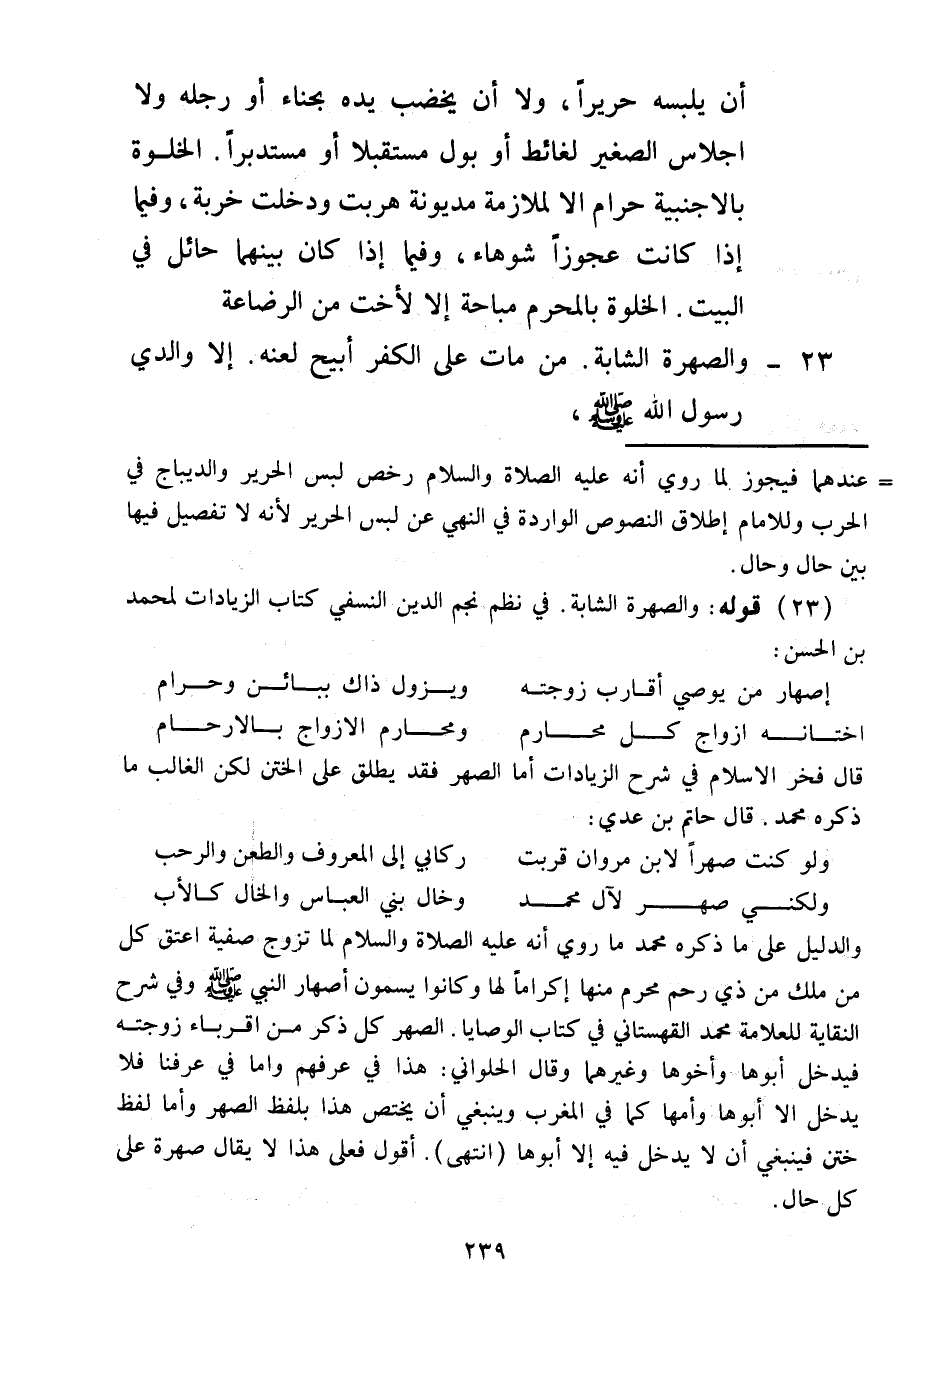 أن يلبسه حريراً، ولا أن يخضب يده بحناء أو رجله ولا
اجلاس الصغير لغائط أو بول مستقبلا أو مستدبراً. الخلوة
بالاجنبية حرام الا لملازمة مديونة هربت ودخلت خربة، وفيما
إذا كانت عجوزاً شوهاء، وفيما إذا كان بينهما حائل في
البيت. الخلوة بالمحرم مباحة إلا لأخت من الرضاعة
٢٣ - والصهرة الشابة. من مات على الكفر أبيح لعنه. إلا والدي
رسول الله ﷺ،
= عندهما فيجوز لما روي أنه عليه الصلاة والسلام رخص لبس الحرير والديباج في
الحرب وللامام إطلاق النصوص الواردة في النهي عن لبس الحرير لأنه لا تفصيل فيها
بين حال وحال.
(٢٣) قوله: والصهرة الشابة. في نظم نجم الدين النسفي كتاب الزيادات لمحمد
بن الحسن:
إصهار من يوصي أقارب زوجته ويزول ذاك ببائن وحرام
اختانه ازواج كل محارم ومحارم الازواج بالارحام
قال فخر الاسلام في شرح الزيادات أما الصهر فقد يطلق على الختن لكن الغالب ما
ذكره محمد. قال حاتم بن عدي:
ولو كنت صهراً لابن مروان قربت ركابي إلى المعروف والطعن والرحب
ولكني صهر لآل محمد وخال بني العباس والخال كالأب
والدليل على ما ذكره محمد ما روي أنه عليه الصلاة والسلام لما تزوج صفية اعتق كل
من ملك من ذي رحم محرم منها إكراماً لها وكانوا يسمون أصهار النبي ﷺ وفي شرح
النقاية للعلامة محمد القهستاني في كتاب الوصايا. الصهر كل ذكر من اقرباء زوجته
فيدخل أبوها وأخوها وغيرهما وقال الحلواني: هذا في عرفهم واما في عرفنا فلا
يدخل الا أبوها وأمها كما في المغرب وينبغي أن يختص هذا بلفظ الصهر وأما لفظ
ختن فينبغي أن لا يدخل فيه إلا أبوها (انتهى). أقول فعلى هذا لا يقال صهرة على
كل حال.
٢٣٩